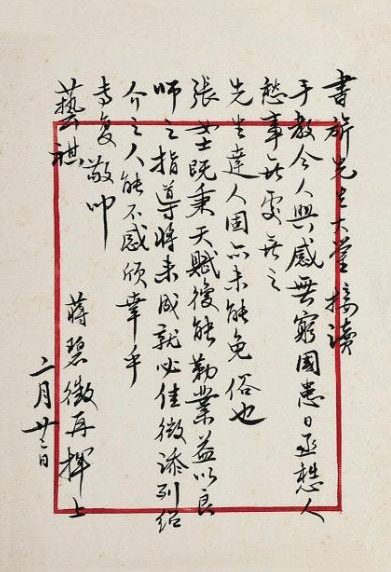 書旂先生大鑒接讀
手教令人興感無窮國患日亟愁人
愁事無處無之
先生達人固亦未能免俗也
張女士既秉天賦復能勤業益以良
師之指導將來成就必佳微添列紹
介之人能不感欣幸乎
專复敬叩
藝祺
蔣碧微再拜上
二月廿三日